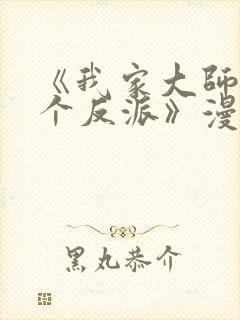 《我家大師
个反派》漫
黑丸恭介